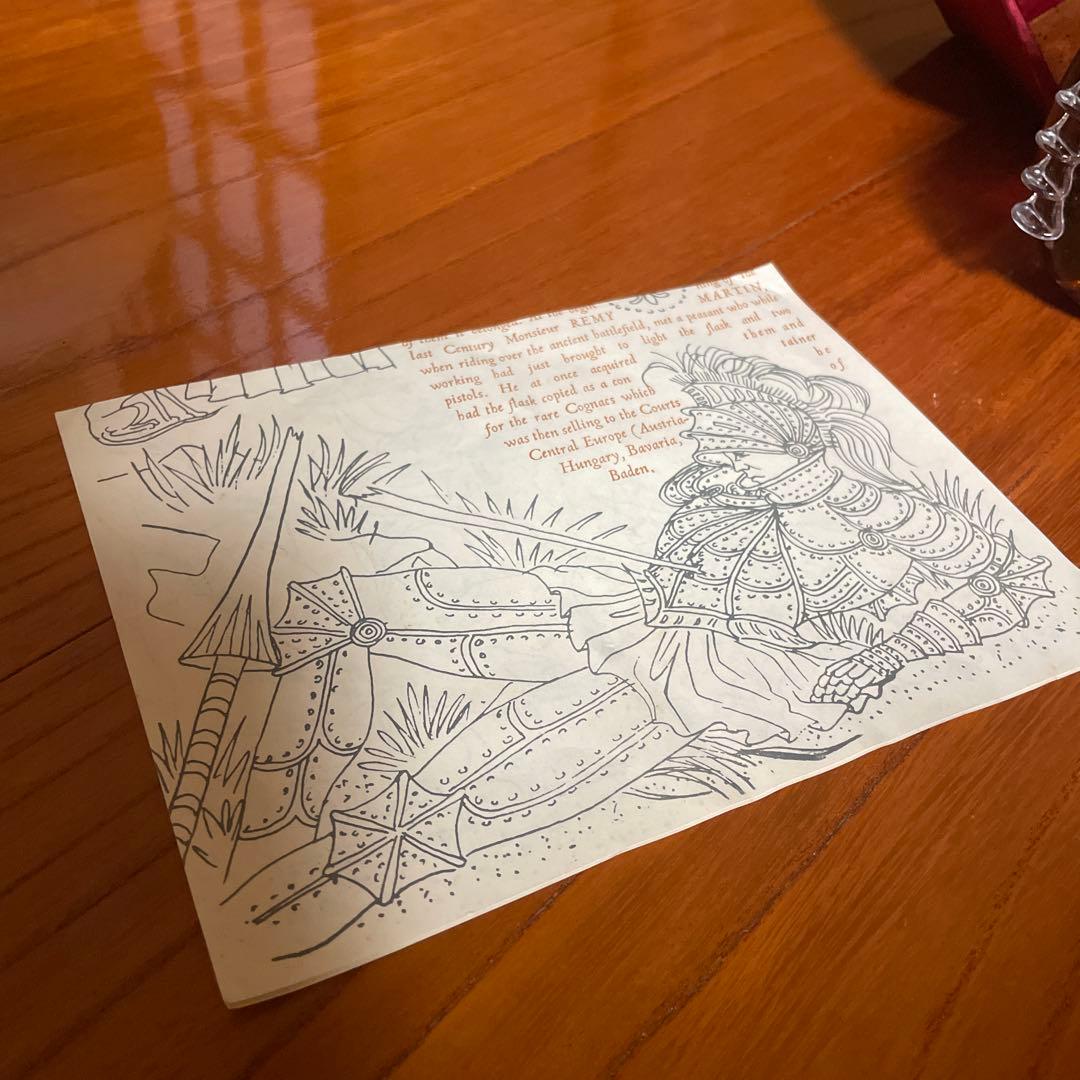 of them is
last Century Monsieur REMY MARTIN,
when riding over the ancient battlefield, met a peasant who while
working had just brought to light the flask and two
pistols. He at once acquired them and
had the flask copied as a con tainer
for the rare Cognacs which be
was then selling to the Courts of
Central Europe (Austria-
Hungary, Bavaria,
Baden.